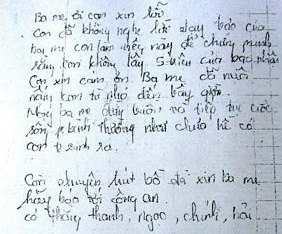 Ba mẹ ơi con xin lỗi
Con đã không nghe lời dạy bảo của
ba mẹ con làm việc này để chứng minh
rằng con không lấy 5 triệu của bạc nhân
Con xin cảm ơn Ba mẹ đã nuôi
nấng con từ nhỏ đến bây giờ.
Mong ba mẹ đừng buồn và tiếp tục cuộc
sống bình thường như chưa hề có
con sinh ra.
Còn chuyện hụt bô đá xin ba mẹ
hãy báo với công an.
có thằng thanh, ngọc, chinh, hải